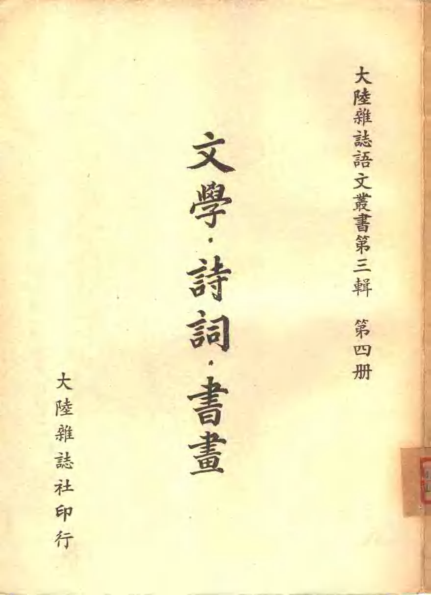 大陸雜誌語文叢書第三輯 第四册
文學·詩詞·書畫
大陸雜誌社印行